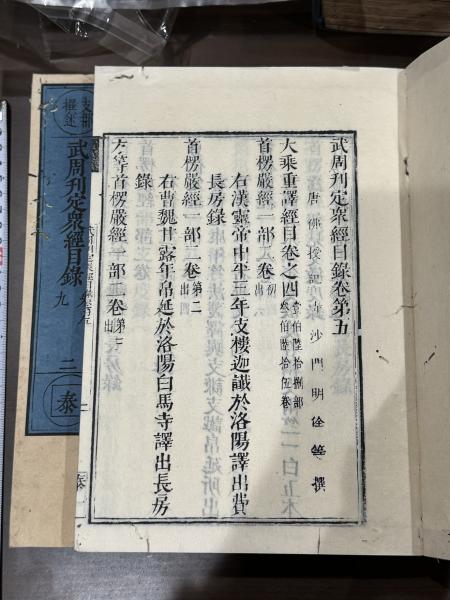 武周刊定衆經目錄卷第五
唐佛授記寺沙門明佺等撰
大乘重譯經目卷之四 壹伯陸拾捌部 叁伯陸拾伍卷
首楞嚴經一部二卷 初出
右漢靈帝中平三年支樓迦讖於洛陽譯出費
長房錄
首楞嚴經一部二卷 第二出
右曹魏甘露年帛延於洛陽白馬寺譯出長房
錄
方等首楞嚴經一部二卷 第七出
支那
撰述
武周刊定衆經目錄
九
三
泰
武周刊定衆經目錄卷五
一
泰